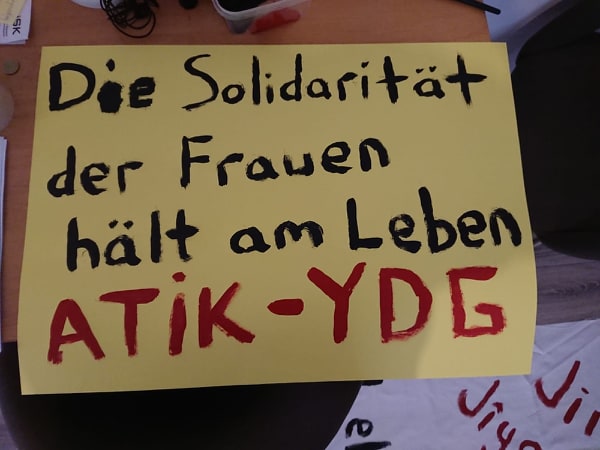 Die Solidarität
der Frauen
hält am Leben
ATiK-YDG